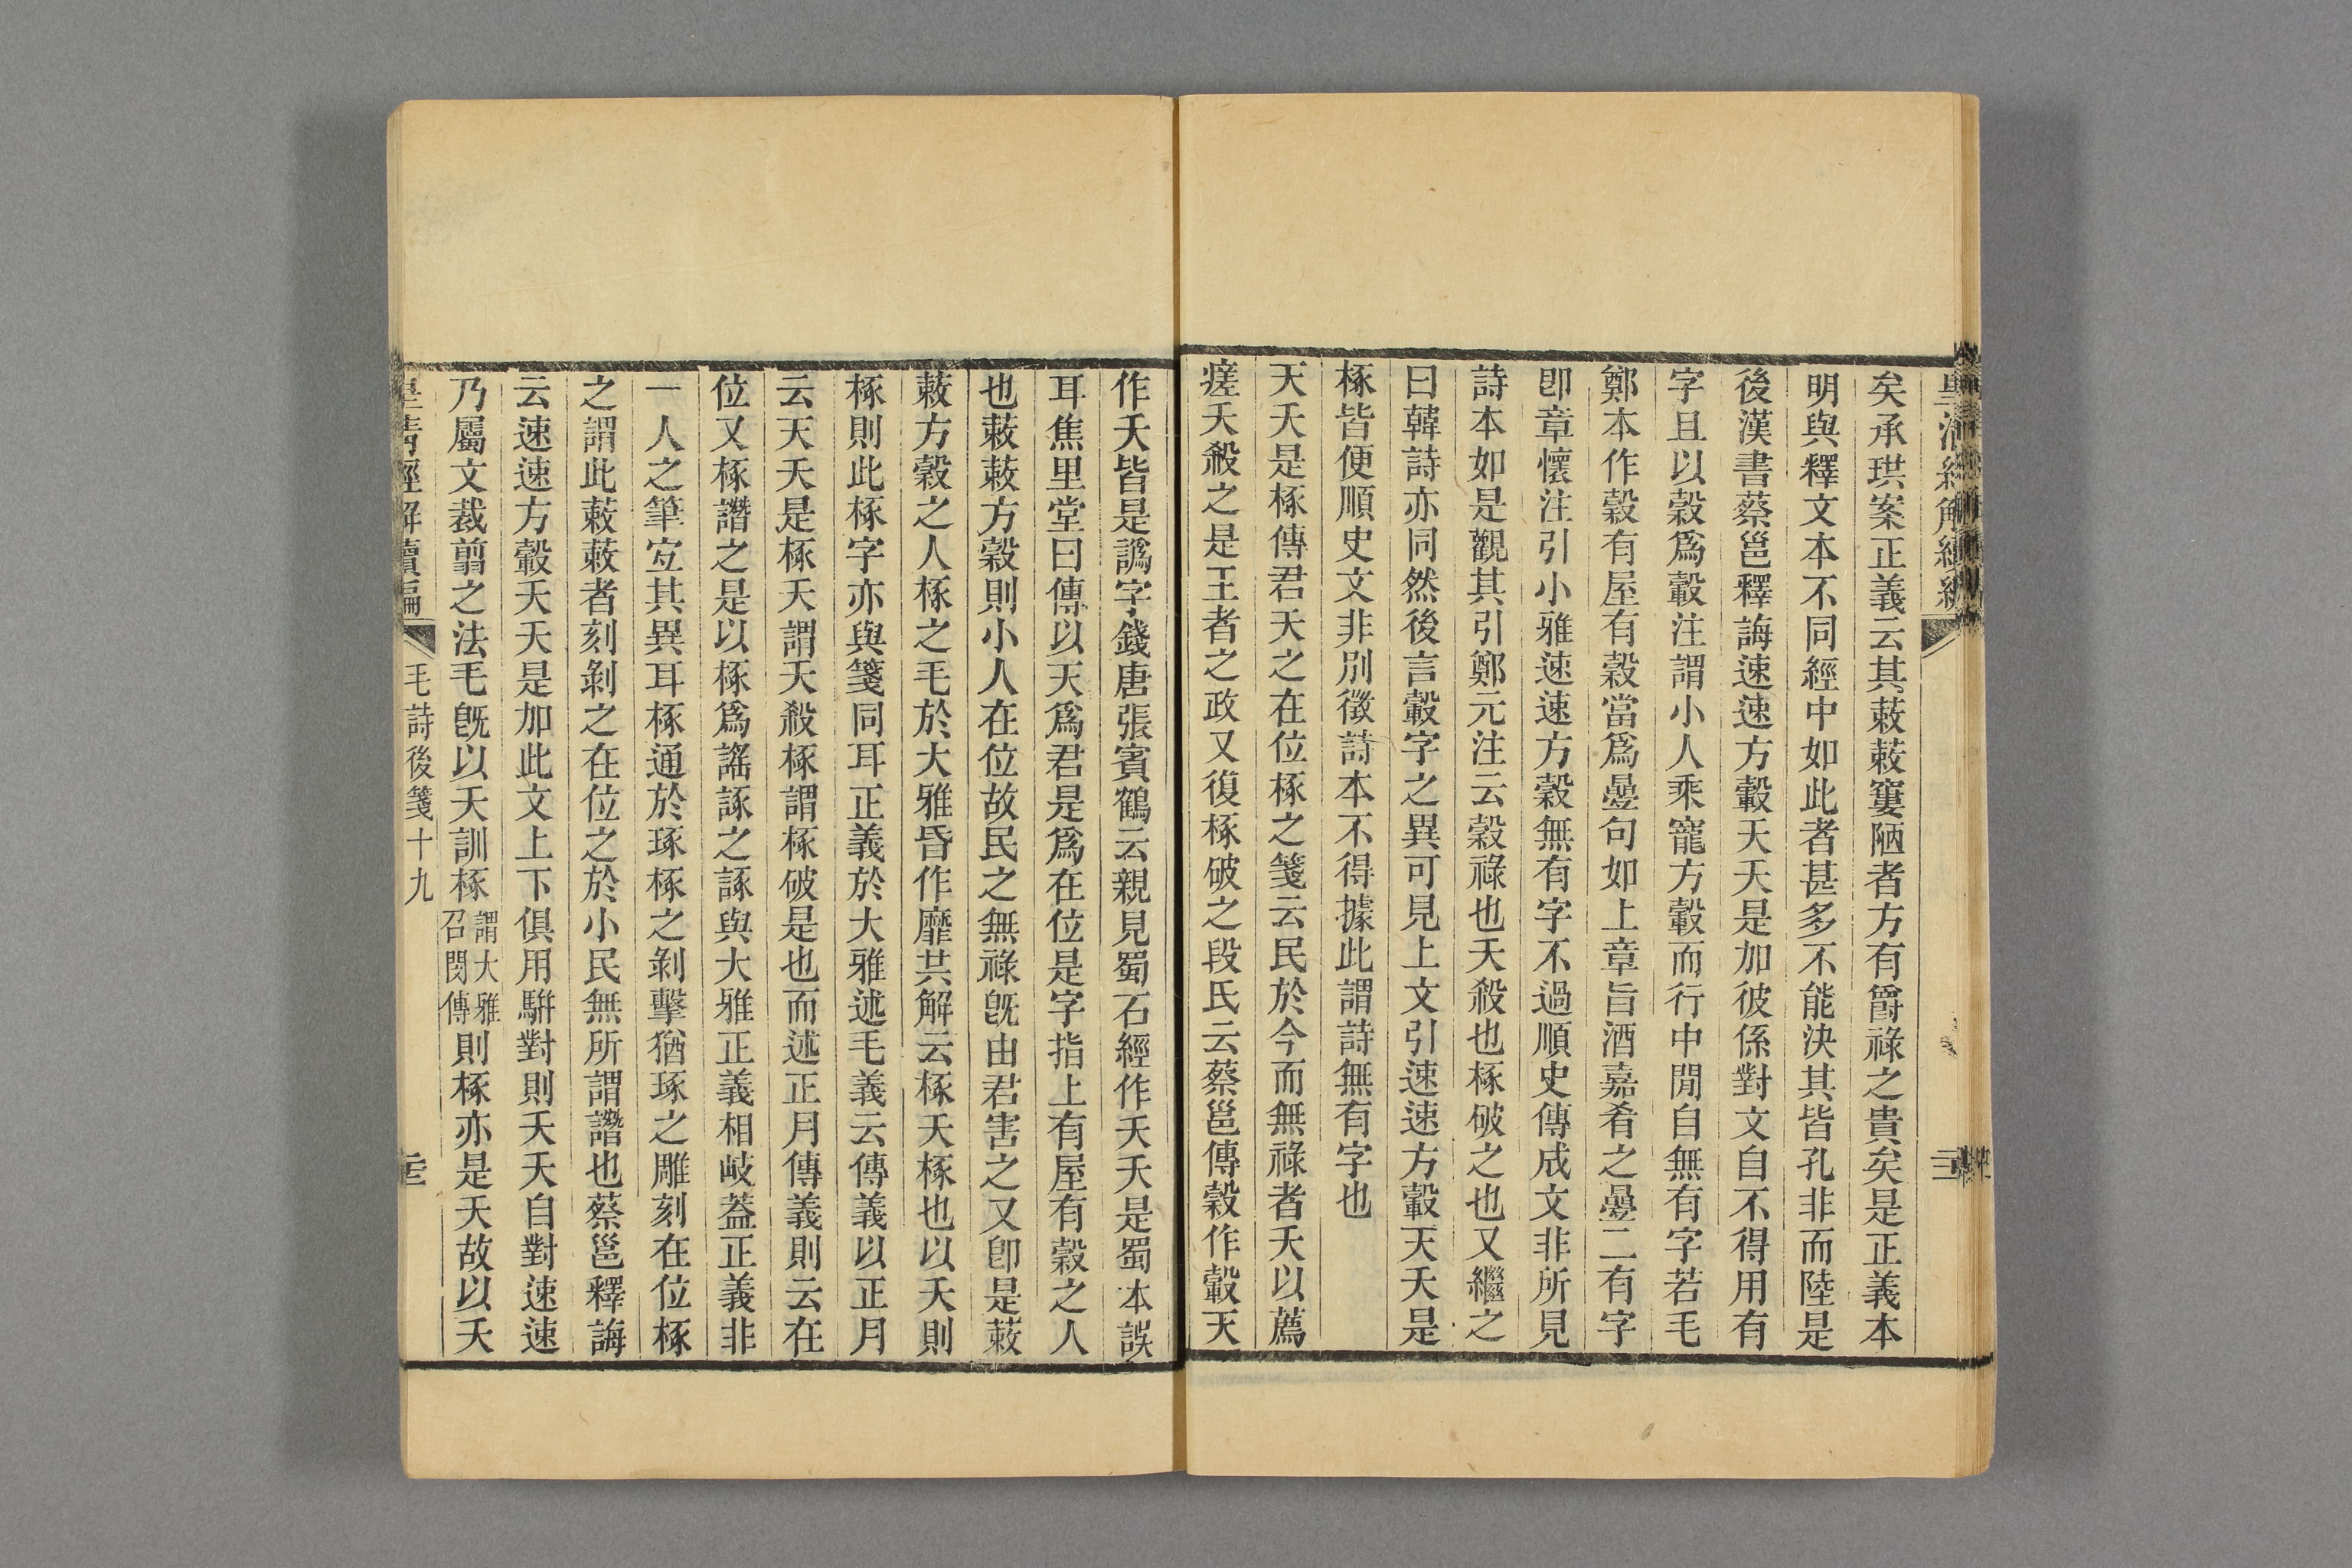 矣承珙案正義云其蔌蔌窶陋者方有爵祿之貴矣是正義本
明與釋文本不同經中如此者甚多不能決其皆孔非而陸是
後漢書蔡邕釋誨速速方轂夭夭是加彼係對文自不得用有
字且以穀爲轂注謂小人乘寵方轂而行中閒自無有字若毛
鄭本作穀有屋有穀當爲疊句如上章旨酒嘉肴之疊二有字
卽章懷注引小雅速速方穀無有字不過順史傳成文非所見
詩本如是觀其引鄭元注云穀祿也夭殺也椓破之也又繼之
曰韓詩亦同然後言轂字之異可見上文引速速方轂夭夭是
椓皆便順史文非別徵詩本不得據此謂詩無有字也
天夭是椓傳君天之在位椓之箋云民於今而無祿者夭以薦
瘥夭殺之是王者之政又復椓破之段氏云蔡邕傳穀作轂天
作夭皆是譌字錢唐張賓鶴云親見蜀石經作夭夭是蜀本誤
耳焦里堂曰傳以天爲君是爲在位是字指上有屋有穀之人
也蔌蔌方穀則小人在位故民之無祿旣由君害之又卽是蔌
蔌方穀之人椓之毛於大雅昏作靡共解云椓夭椓也以夭則
椓則此椓字亦與箋同耳正義於大雅述毛義云傳義以正月
云天夭是椓夭謂夭殺椓謂椓破是也而述正月傳義則云在
位又椓譖之是以椓爲謠諑之諑與大雅正義相岐葢正義非
一人之筆宐其異耳椓通於琢椓之剝擊猶琢之雕刻在位椓
之謂此蔌蔌者刻剝之在位之於小民無所謂譖也蔡邕釋誨
云速速方轂夭夭是加此文上下俱用騈對則夭夭自對速速
乃屬文裁翦之法毛旣以夭訓椓謂大雅召閔傳則椓亦是夭故以夭
毛詩後箋十九